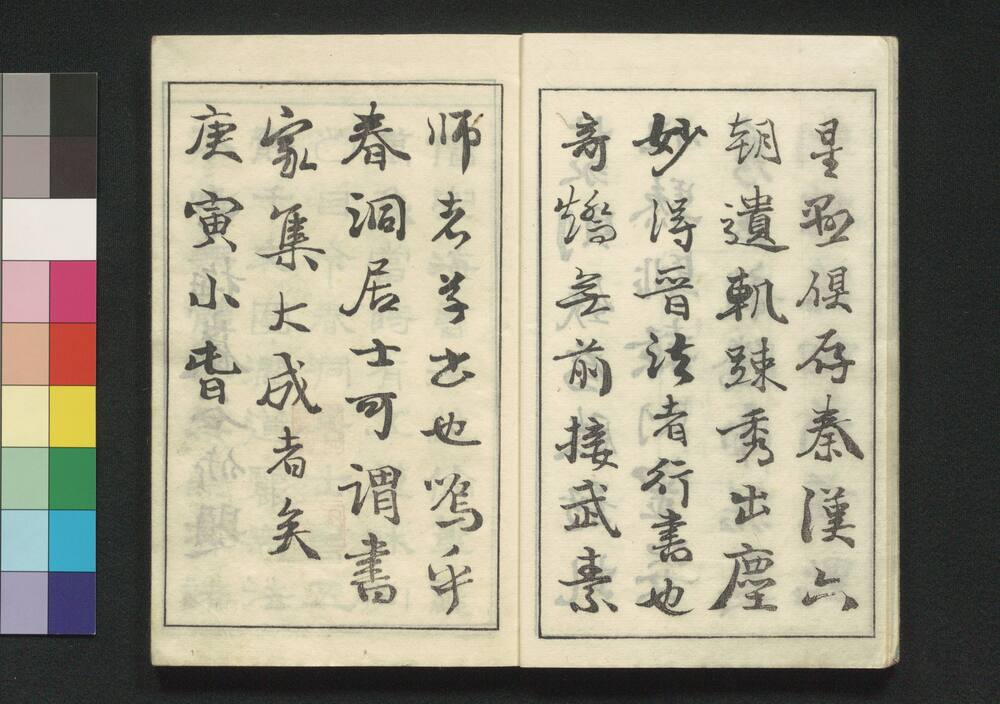 星俱存秦漢六
朝遺軌踈秀出塵
妙得晉法者行書也
奇矯無前接武素
師者草書也嗚乎
春洞居士可謂書
家集大成者矣
庚寅小旾